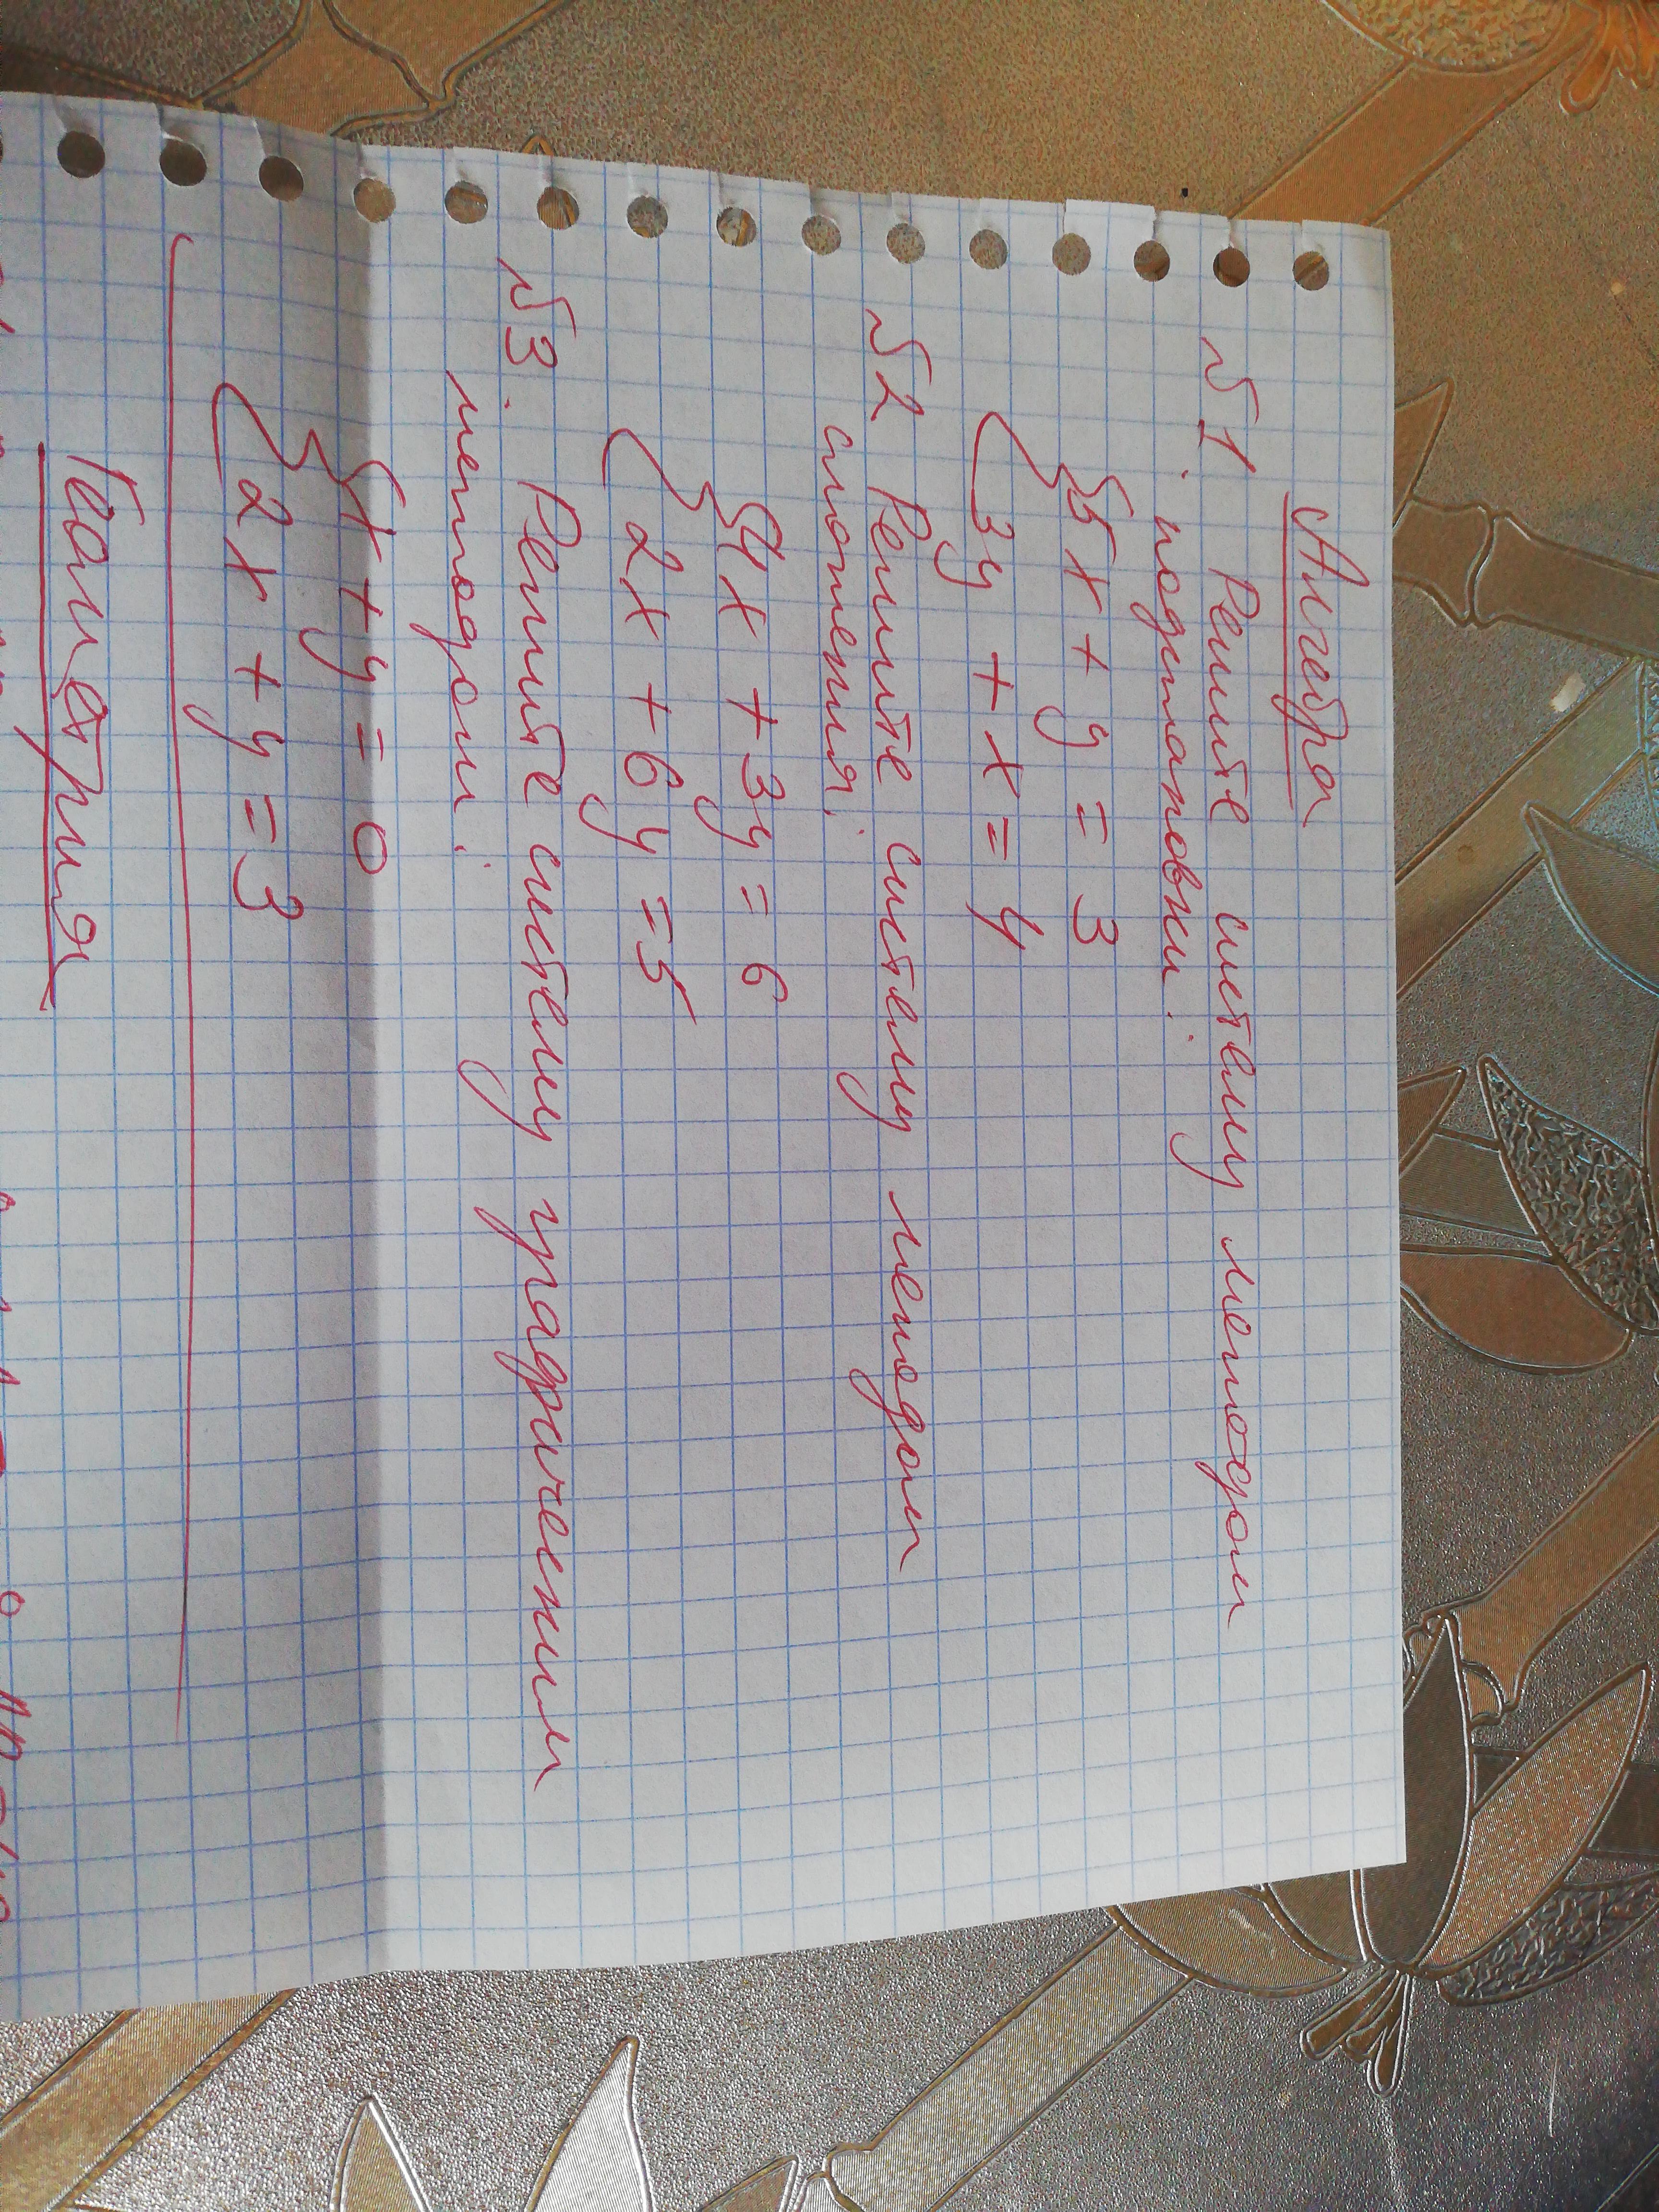 Алгебра
№1. Решите систему методом
подстановки:
{5x + y = 3
3y + x = 4
№2 Решите систему методом
сложения:
{4x + 3y = 6
2x + 6y = 5
№3. Решите систему графическим
методом:
{x + y = 0
2x + y = 3
Геометрия